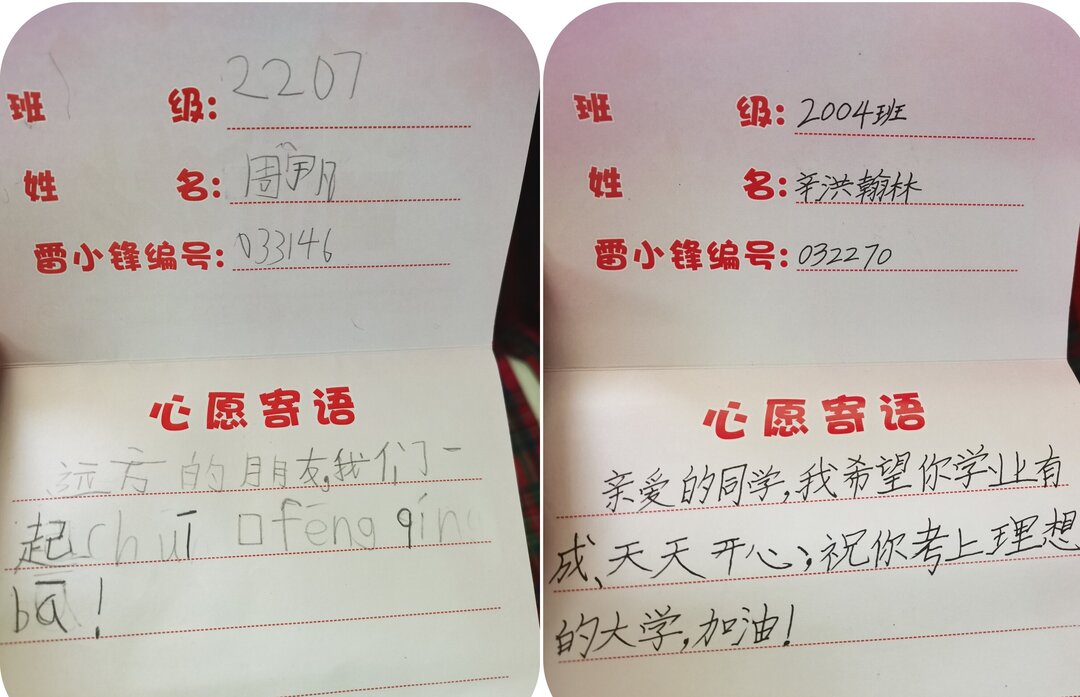 班 级: 2207
姓 名: 周
雷小锋编号: 033146
心愿寄语
远方的朋友,我们一
起chuī 口fēng qín
bā!
班 级: 2004班
姓 名: 辛洪翰林
雷小锋编号: 032270
心愿寄语
亲爱的同学,我希望你学业有
成、天天开心;祝你考上理想
的大学,加油!